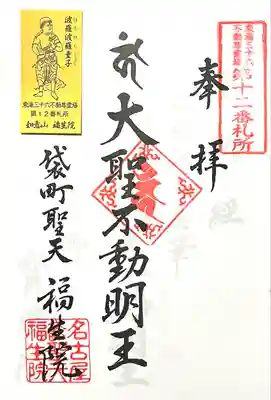 東海三十六
不動尊霊場
第十二番札所
奉拝
大聖不動明王
波羅波羅童子
東海三十六不動尊霊場
第12番札所
如意山 福生院
袋町聖天 福生院
名古屋
福生院